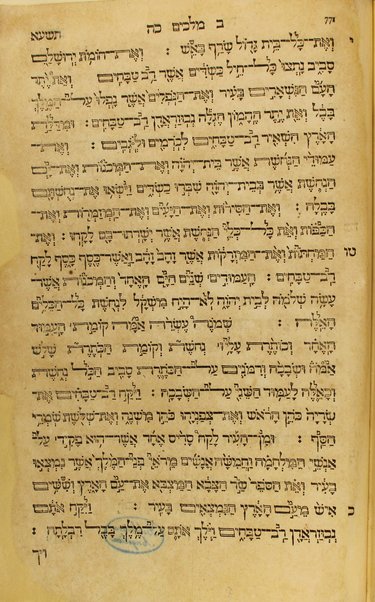 771 ב מלכים כה תשעא
י ואת־כל־בית גדול שרף באש : ואת־חומת ירושלם
סביב נתצו כל־חיל כשדים אשר רב־טבחים : ואת יתר
העם הנשארים בעיר ואת־הנפלים אשר נפלו על־המלך
בבל ואת יתר ההמון הגלה נבוזראדן רב־טבחים : ומדלת
הארץ השאיר רב־טבחים לכרמים וליגבים : ואת־
עמודי הנחשת אשר בית־יהוה ואת־המכנות ואת־ים
הנחשת אשר בבית־יהוה שברו כשדים וישאו את־נחשתם
בבלה : ואת־הסירות ואת־היעים ואת־המזמרות ואת־
הכפות ואת כל־כלי הנחשת אשר ישרתו־בם לקחו :
טו המחתות ואת־המזרקות אשר זהב זהב ואשר־כסף כסף לקח
רב־טבחים : העמודים שנים הים האחד והמכנות אשר
עשה שלמה לבית יהוה לא־היה משקל לנחשת כל־הכלים
האלה : שמנה עשרה אמה קומת העמוד
האחד וכתרת עליו נחשת וקומת הכתרת שלש
אמה ושבכה ורמנים על־הכתרת סביב הכל נחשת
וכאלה לעמוד השני על־השבכה : ויקח רב־טבחים את
שריה כהן הראש ואת־צפניהו כהן משנה ואת־שלשת שמרי
הסף : ומן־העיר לקח סריס אחד אשר־הוא פקיד על־
אנשי המלחמה וחמשה אנשים מראי פני־המלך אשר נמצאו
בעיר ואת הספר שר הצבא המצבא את־עם הארץ וששים
כ איש מעם הארץ הנמצאים בעיר : ויקח אתם
נבוזראדן רב־טבחים וילך אתם על־מלך בבל רבלתה :
ויך